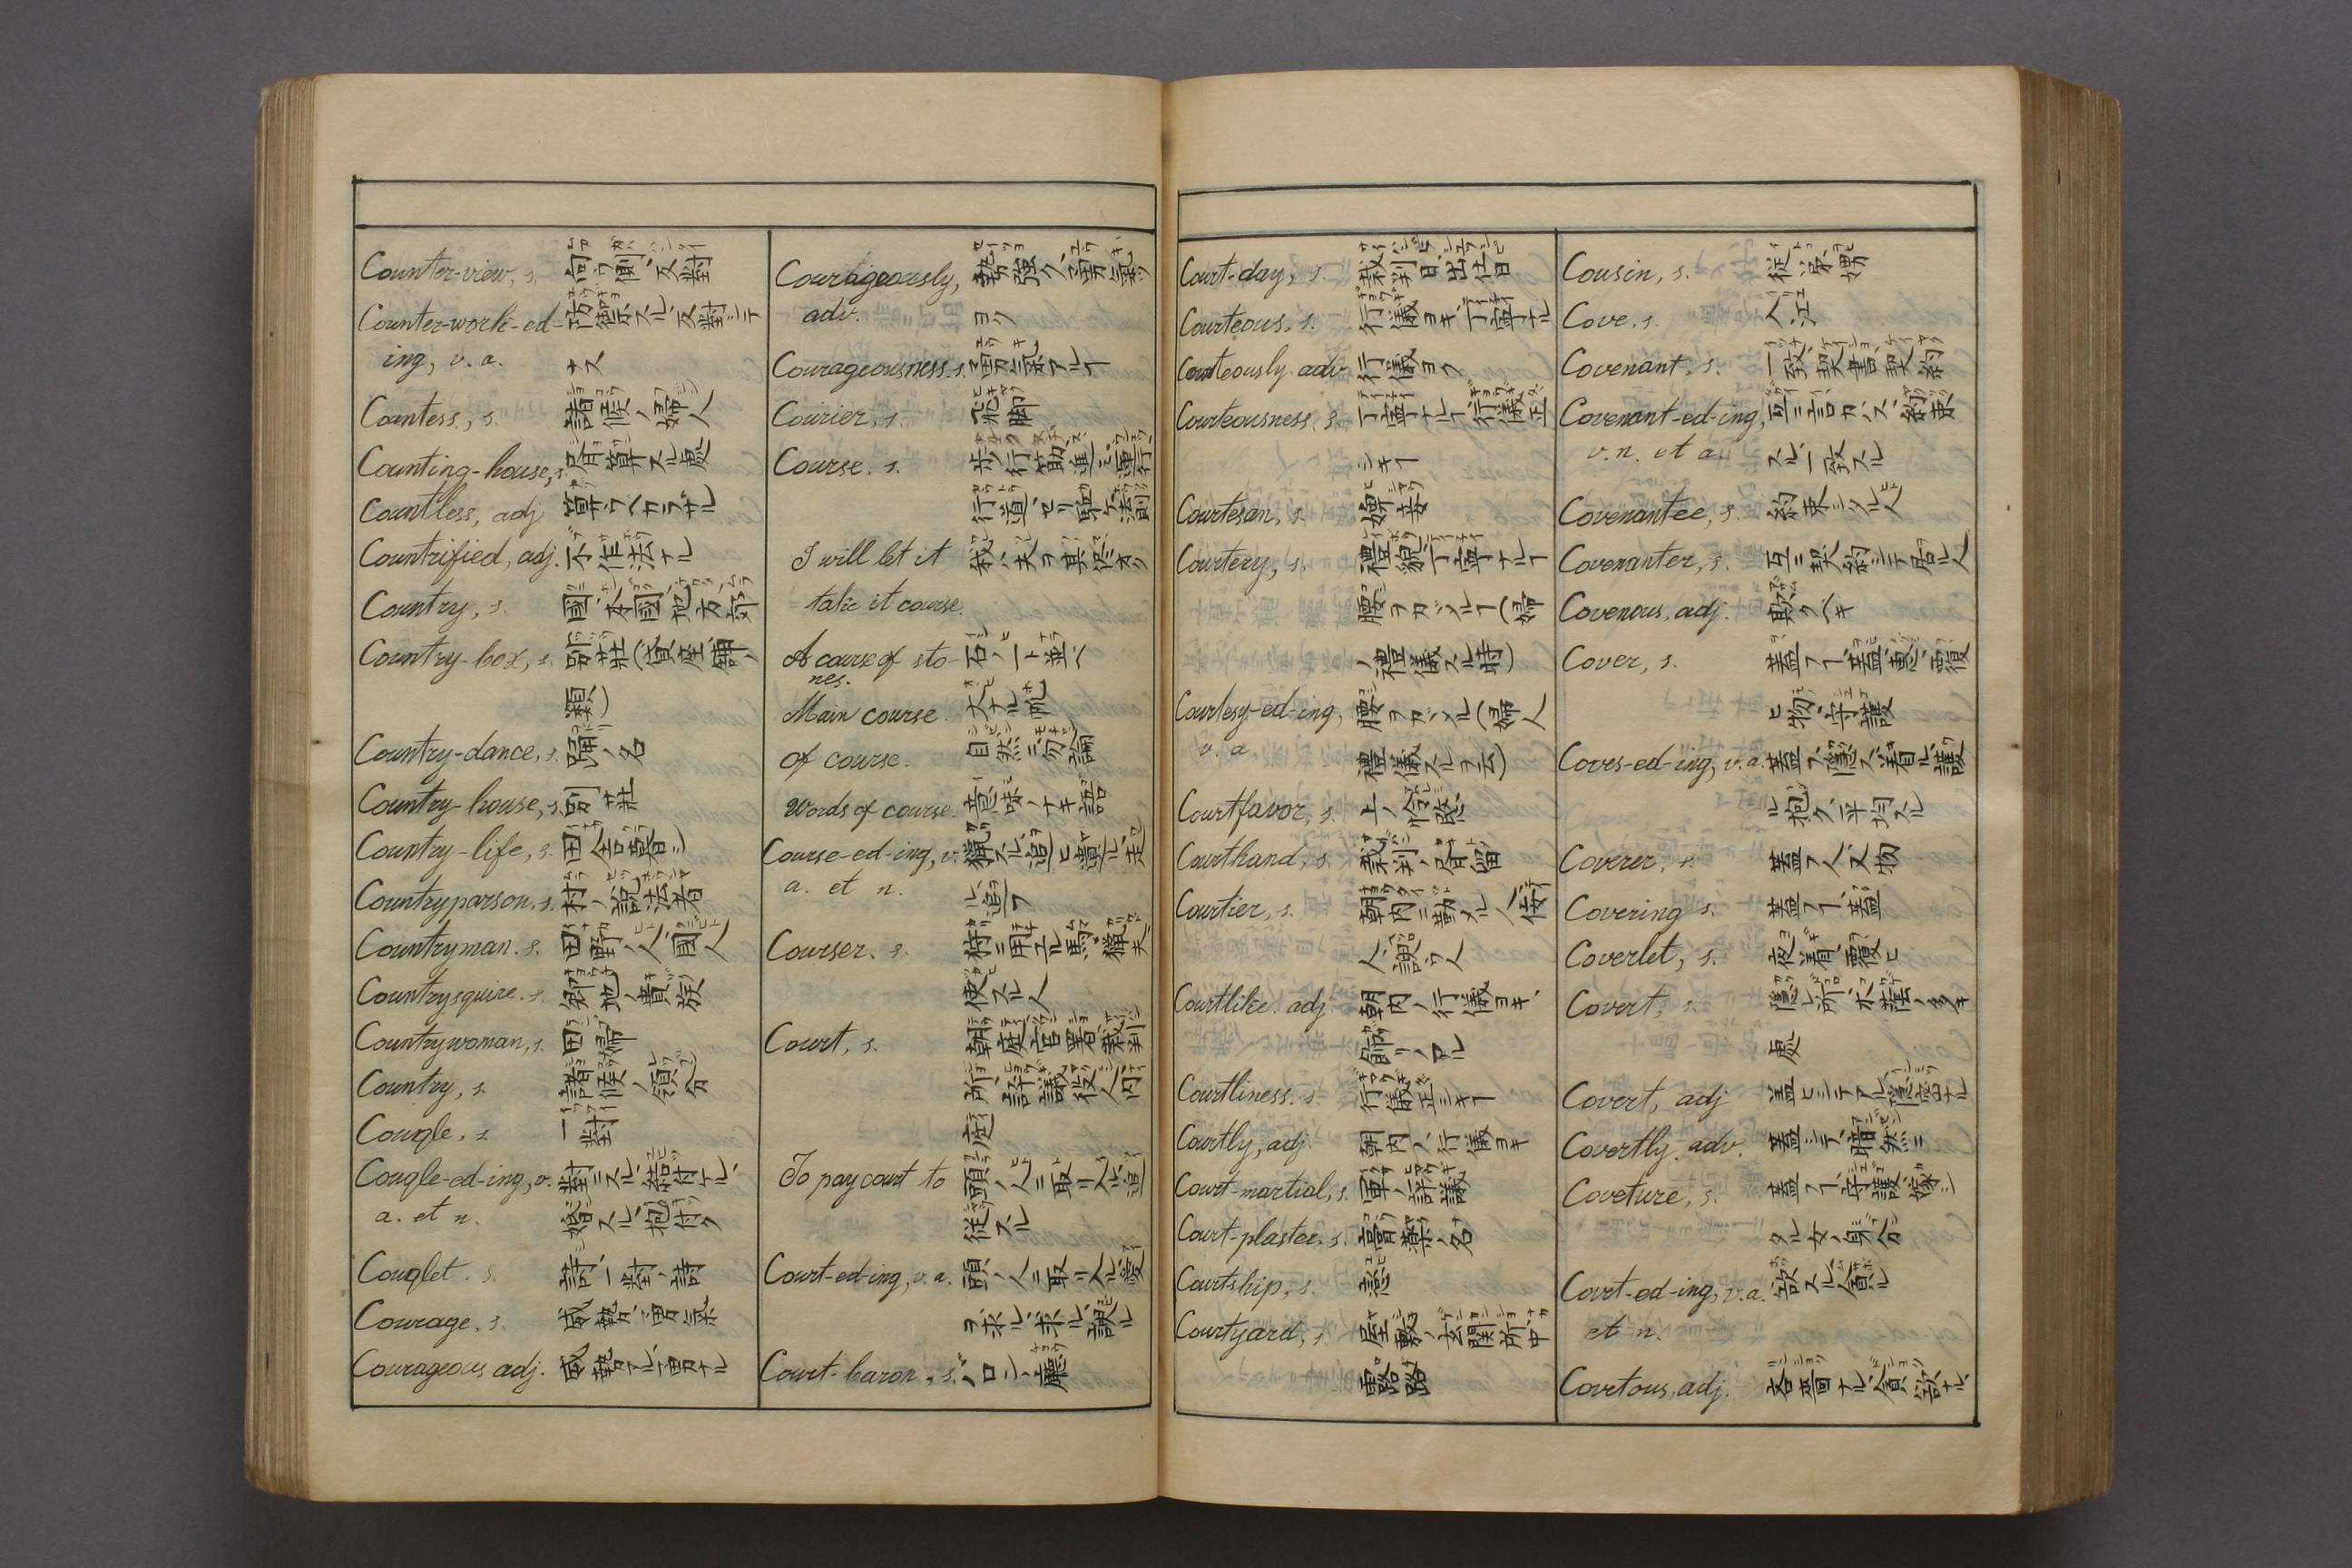 Counter-view, s. 向フ側、反對
Counter-work-ed- 防禦スル、反對シテ
ing, v. a. ナス
Countess, s. 諸侯ノ婦人
Counting-house, s. 算スル處
Countless, adj. 算ヘラベカラザル
Countrified, adj. 不作法ナル
Country, s. 國、本國、地方、郷
Country-box, s. 別莊
類)
Country-dance, s. 踊ノ名
Country-house, s. 別莊
Country-life, s. 田舍暮シ
Countryparson, s. 村ノ説法者
Countryman. s. 田野ノ人、國人
Countrysquire. s. 郷地ノ貴族
Countrywoman, s. 田婦
Country, s. 諸侯ノ領分
Couqle, s. 一對
Couqle-ed-ing, v. 對ニスル、結付ル、
a. et n. 婚スル、抱付ク
Couqlet. s. 詩、一對ノ詩
Courage. s. 威勢、勇氣
Courageous adj. 威勢アル、勇ナル
Courageously, 勢強ク、勇氣
adv. ヨク
Courageousness. s. 勇氣アルヿ
Courier, s. 飛脚
Course. s. 歩ノ行、筋、進ミ、運行
行道、セリ駆ケ、法則
I will let it 我ハ夫ヲ其侭オク
take it course.
A course of sto- 石ノ一ト並ヘ
nes.
Main course. 大ナル帆
Of course. 自然ニ、勿論
Words of course. 意味ノナキ語
Course-ed-ing, v. 獵スル、追ヒ遣ル、走
a. et n. ル、追フ
Courser. s. 狩ニ用ユル馬、獵夫
使スル人
Court, s. 朝庭、官署、裁判
所、評議役人、内
庭
To pay court to 頭ノ人ニ取リ入ル、追
従スル
Court-ed-ing, v. a. 頭ノ人ニ取リ入ル、愛
ヲ求ル、求ル、諛ル
Court-baron, s. バロンノ廳
Court-day, s. 裁判日、出仕日
Courteous, s. 行儀ヨキ、丁寧ナル
Courteously. adv. 行儀ヨク
Courteousness. s. 丁寧ナルヿ、行儀正
シキヿ
Courtesan, s. 娉妾
Courtery, s. 禮貌、丁寧ナルヿ
腰ヲカヾムルヿ(婦
ノ禮儀スル時)
Courtesy-ed-ing, 腰ヲカヾメル(婦人
v. a. 禮儀スルヲ云)
Courtfavor, s. 上ノ怜愍
Courthand, s. 裁判ノ書留
Courtier, s. 朝内ニ勤メル人、侫
人、諛フ人
Courtlike. adj. 朝内ノ行儀ヨキ、
飾リノアル
Courtliness. s. 行儀正シキヿ
Courtly, adj. 朝内ノ行儀ヨキ
Court-martial, s. 軍ノ評議
Court-plaster, s. 膏藥ノ名
Courtship, s. 戀
Courtyard, s. 屋敷ノ玄関所、中
露路
Cousin, s. 従弟、甥
Cove, s. 入江
Covenant, s. 一致、契書、契約
Covenant-ed-ing, 互ニ言カハス、約束
v. n. et a. スル、一致スル
Covenantee, s. 約束シタル人
Covenanter, s. 互ニ契約シテ居ル人
Covenous, adj. 欺クヘキ
Cover, s. 蓋フヿ、蓋、裏、覆
ヒ物、守護
Coves-ed-ing, v. a. 蓋フ、隱ス、着ル、護
ル、抱ク、平均スル
Coverer, s. 蓋フ人、又物
Covering s. 蓋フヿ、蓋
Coverlet, s. 夜着、覆ヒ
Covert, s. 隱レ所、木蔭ノ多キ
處
Covert, adj 蓋ヒシテアル、隱密ナル
Covertly. adv. 蓋シテ、暗然ニ
Coveture, s. 蓋フヿ、守護、嫁シ
タル女ノ身分
Covet-ed-ing, v. a. 欲スル、貪ル
et n.
Covetous, adj. 吝嗇ナル、貪欲ナル、